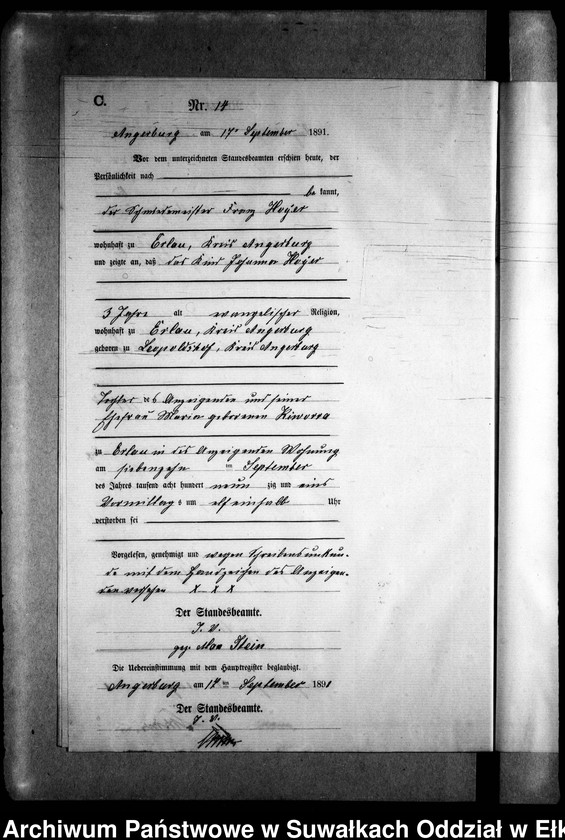 C.
Nr. 14
Angerburg am 17ten September 1891.
Vor dem unterzeichneten Standesbeamten erschien heute, der
Persönlichkeit nach
be kannt,
der Schmiedemeister Franz Hoyer
wohnhaft zu Erlau, Kreis Angerburg
und zeigte an, daß das Kind Johanna Hoyer
3 Jahre alt evangelischer Religion,
wohnhaft zu Erlau, Kreis Angerburg
geboren zu Leopoldshof, Kreis Angerburg
Tochter des Anzeigenden und seiner
Ehefrau Maria geborenen
zu Erlau in des Anzeigenden Wohnung
am siebenzehn ten September
des Jahres tausend acht hundert neun zig und eins
Vormittag s um elf einhalb Uhr
verstorben sei
Vorgelesen, genehmigt und wegen Schreibensunkun-
de mit dem Handzeichen des Anzeigen-
den versehen X X X
Der Standesbeamte.
J. V.
gez. Max Stein
Die Uebereinstimmung mit dem Hauptregister beglaubigt.
Angerburg am 17 ten September 1891
Der Standesbeamte.
J. V.
Archiwum Państwowe w Suwałkach Oddział w Ełk